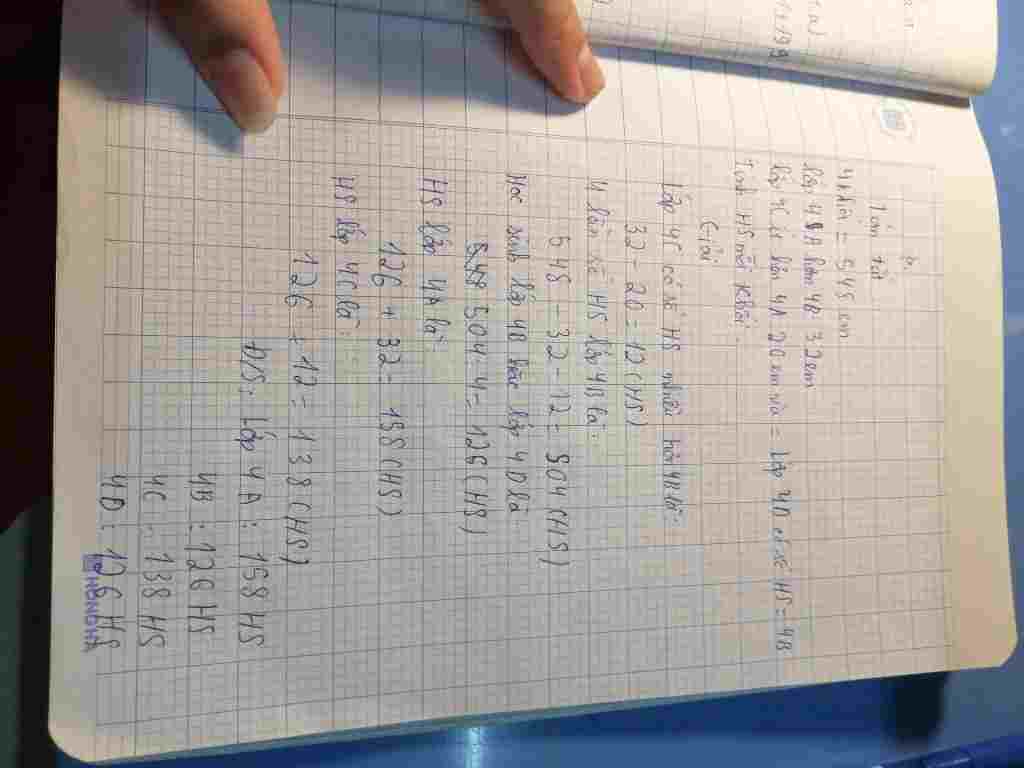 Tóm tắt
4 khối = 548 em
lớp 4A hơn 4B 32 em
lớp 4C ít hơn 4A 20 em và = lớp 4D có số HS = 4B
Tính HS mỗi khối
Giải
Lớp 4C có số HS nhiều hơn 4B là:
32 - 20 = 12 (HS)
4 lần số HS lớp 4B là:
548 - 32 - 12 = 504 (HS)
Học sinh lớp 4B hoặc lớp 4D là:
504 : 4 = 126 (HS)
HS lớp 4A là:
126 + 32 = 158 (HS)
HS lớp 4C là:
126 + 12 = 138 (HS)
Đ/S: Lớp 4A: 158 HS
4B: 126 HS
4C: 138 HS
4D: 126 HS
HONGHA